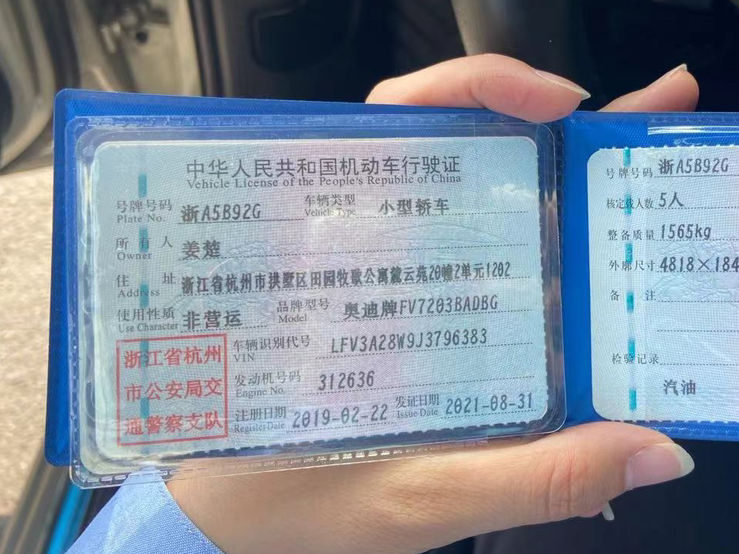 中华人民共和国机动车行驶证
Vehicle License of the People's Republic of China
号牌号码 浙A5B92G 车辆类型 小型轿车
Plate No. Vehicle Type
所有人 姜楚
Owner
住址 浙江省杭州市拱墅区田园牧歌公寓黛云苑20幢2单元1202
Address
使用性质 非营运 品牌型号 奥迪牌FV7203BADBG
Use Character Model
浙江省杭州
市公安局交
通警察支队
车辆识别代号 LFV3A28W9J3796383
VIN
发动机号码 312636
Engine No.
注册日期 2019-02-22 发证日期 2021-08-31
Register Date Issue Date
号牌号码 浙A5B92G
核定载人数 5人
整备质量 1565kg
外廓尺寸 4818×184
备注
检验记录
汽油